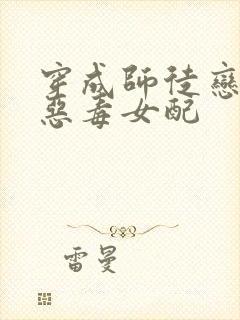 穿成師徒戀
惡毒女配
雷曼